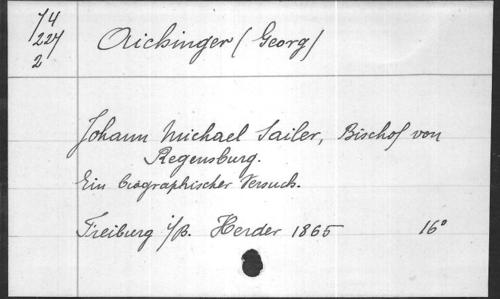 74
227
2
Aichinger (Georg)
Johann Michael Sailer, Bischof von
Regensburg.
Ein biographischer Versuch.
Freiburg i/B. Herder 1865 16°